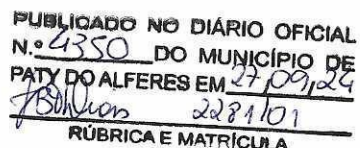 PUBLICADO NO DIÁRIO OFICIAL
N.º 4350 DO MUNICÍPIO DE
PATY DO ALFERES EM 27,09,24
2281/01
RÚBRICA E MATRÍCULA